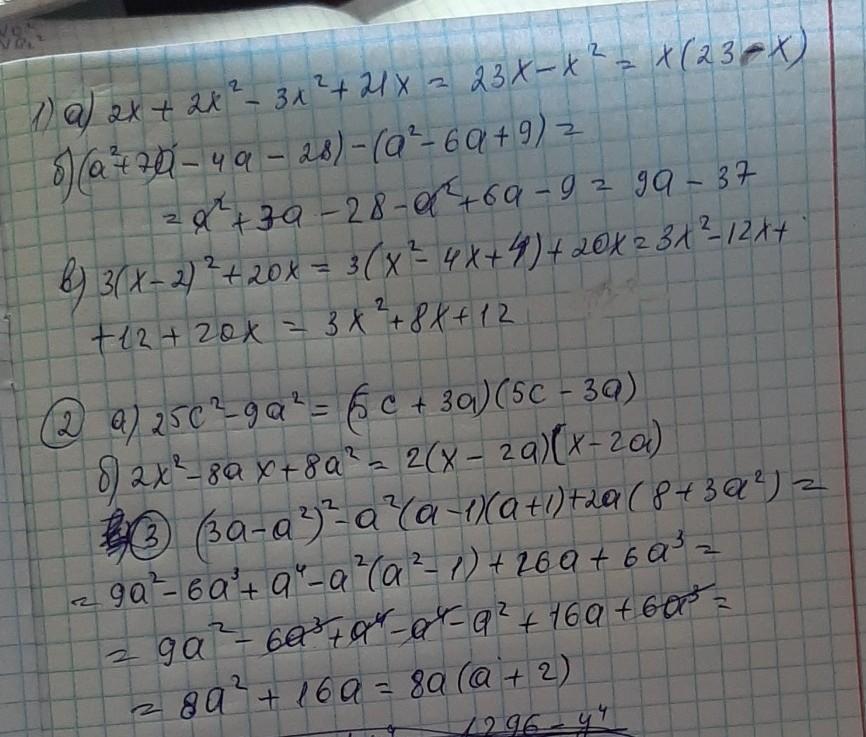 1) а) 2x + 2x² - 3x² + 21x = 23x - x² = x(23 - x)
б) (a² + 7a - 4a - 28) - (a² - 6a + 9) =
= a² + 3a - 28 - a² + 6a - 9 = 9a - 37
в) 3(x - 2)² + 20x = 3(x² - 4x + 4) + 20x = 3x² - 12x +
+ 12 + 20x = 3x² + 8x + 12
2 а) 25c² - 9a² = (5c + 3a)(5c - 3a)
б) 2x² - 8ax + 8a² = 2(x - 2a)(x - 2a)
3 (3a - a²)² - a²(a - 1)(a + 1) + 2a(8 + 3a²) =
= 9a² - 6a³ + a⁴ - a²(a² - 1) + 26a + 6a³ =
= 9a² - 6a³ + a⁴ - a⁴ - a² + 16a + 6a³ =
= 8a² + 16a = 8a(a + 2)
1296 - y⁴